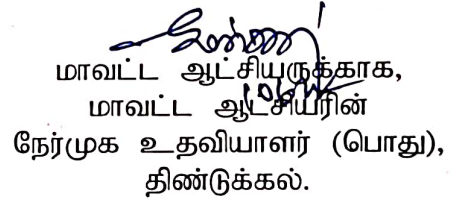 மாவட்ட ஆட்சியருக்காக,
மாவட்ட ஆட்சியரின்
நேர்முக உதவியாளர் (பொது),
திண்டுக்கல்.